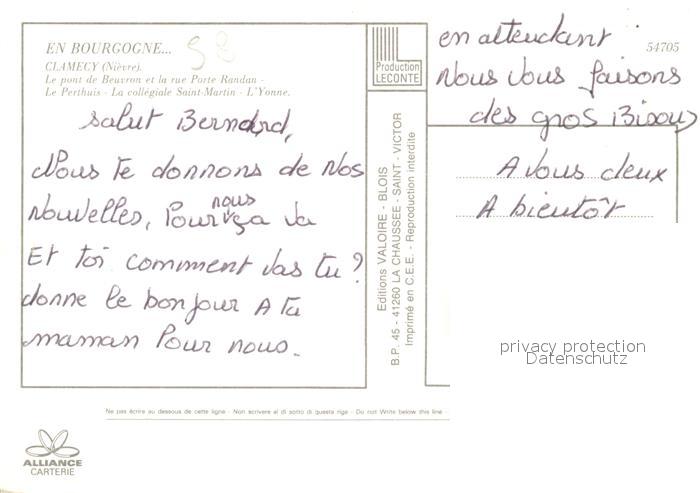 EN BOURGOGNE...
58
CLAMECY (Nièvre).
Le pont de Beuvron et la rue Porte Randan -
Le Perthuis - La collégiale Saint-Martin - L'Yonne.
Salut Bernard,
Nous te donnons de nos
nouvelles, Pour nous ça va
Et toi comment vas tu?
donne le bonjour A ta
maman Pour nous.
Production
LECONTE
54705
en attendant
Nous vous faisons
des gros Bisous
A vous deux
A bientôt
Editions VALOIRE - BLOIS
B.P. 45 - 41260 LA CHAUSSEE - SAINT - VICTOR
Imprimé en C.E.E. - Reproduction interdite
privacy protection
Datenschutz
Ne pas écrire au dessous de cette ligne - Non scrivere al di sotto di questa riga - Do not Write below this line -
ALLIANCE
CARTERIE